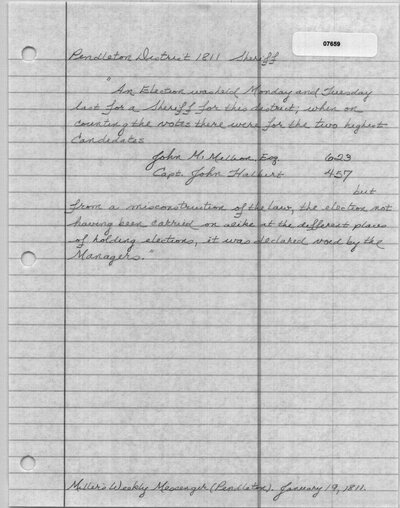 07659
Pendleton District 1811 Sheriff
"An Election was held Monday and Tuesday
last for a Sheriff for this district; when on
counting the votes there were for the two highest
Candidates
John McMillion, Esq. 623
Capt. John Halbert 457
but
from a misconstruction of the law, the election not
having been carried on alike at the different places
of holding elections, it was declared void by the
Managers."
Miller's Weekly Messenger (Pendleton). January 19, 1811.